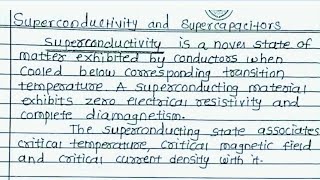 Superconductivity and Supercapacitors
Superconductivity is a novel state of
matter exhibited by conductors when
cooled below corresponding transition
temperature. A superconducting material
exhibits zero electrical resistivity and
complete diamagnetism.
The superconducting state associates
critical temperature, critical magnetic field
and critical current density with it.